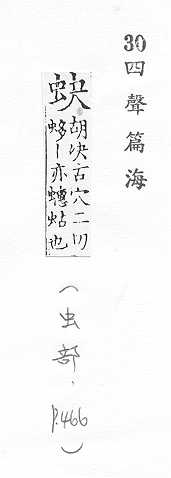 30四聲篇海
蚗
胡决古穴二切
蛥丨亦蟪蛄也
(虫部,p.466)